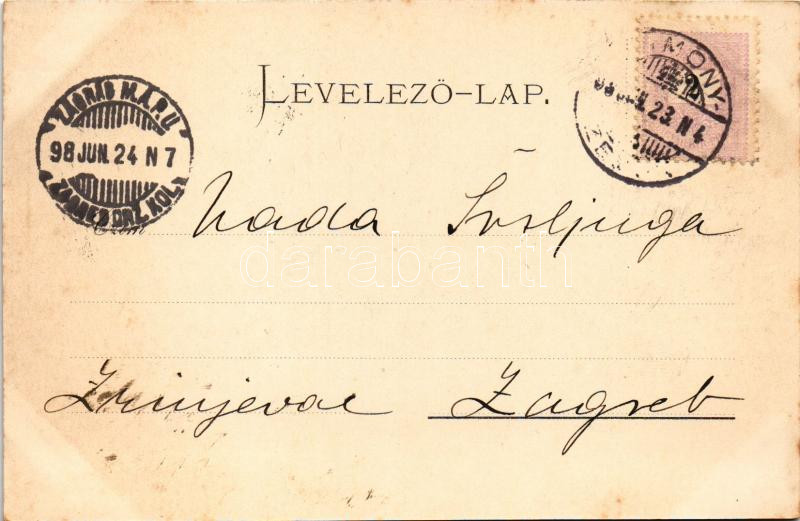 LEVELEZŐ-LAP.
ZÁGRÁB M.Á.P.U.
98 JUN. 24 N 7
ZAGREB DRŽ. KOL.
MONY-
98 JUN. 23. N 4
Czím
Nada Švrljuga
darabanth
Zrinjevac Zagreb